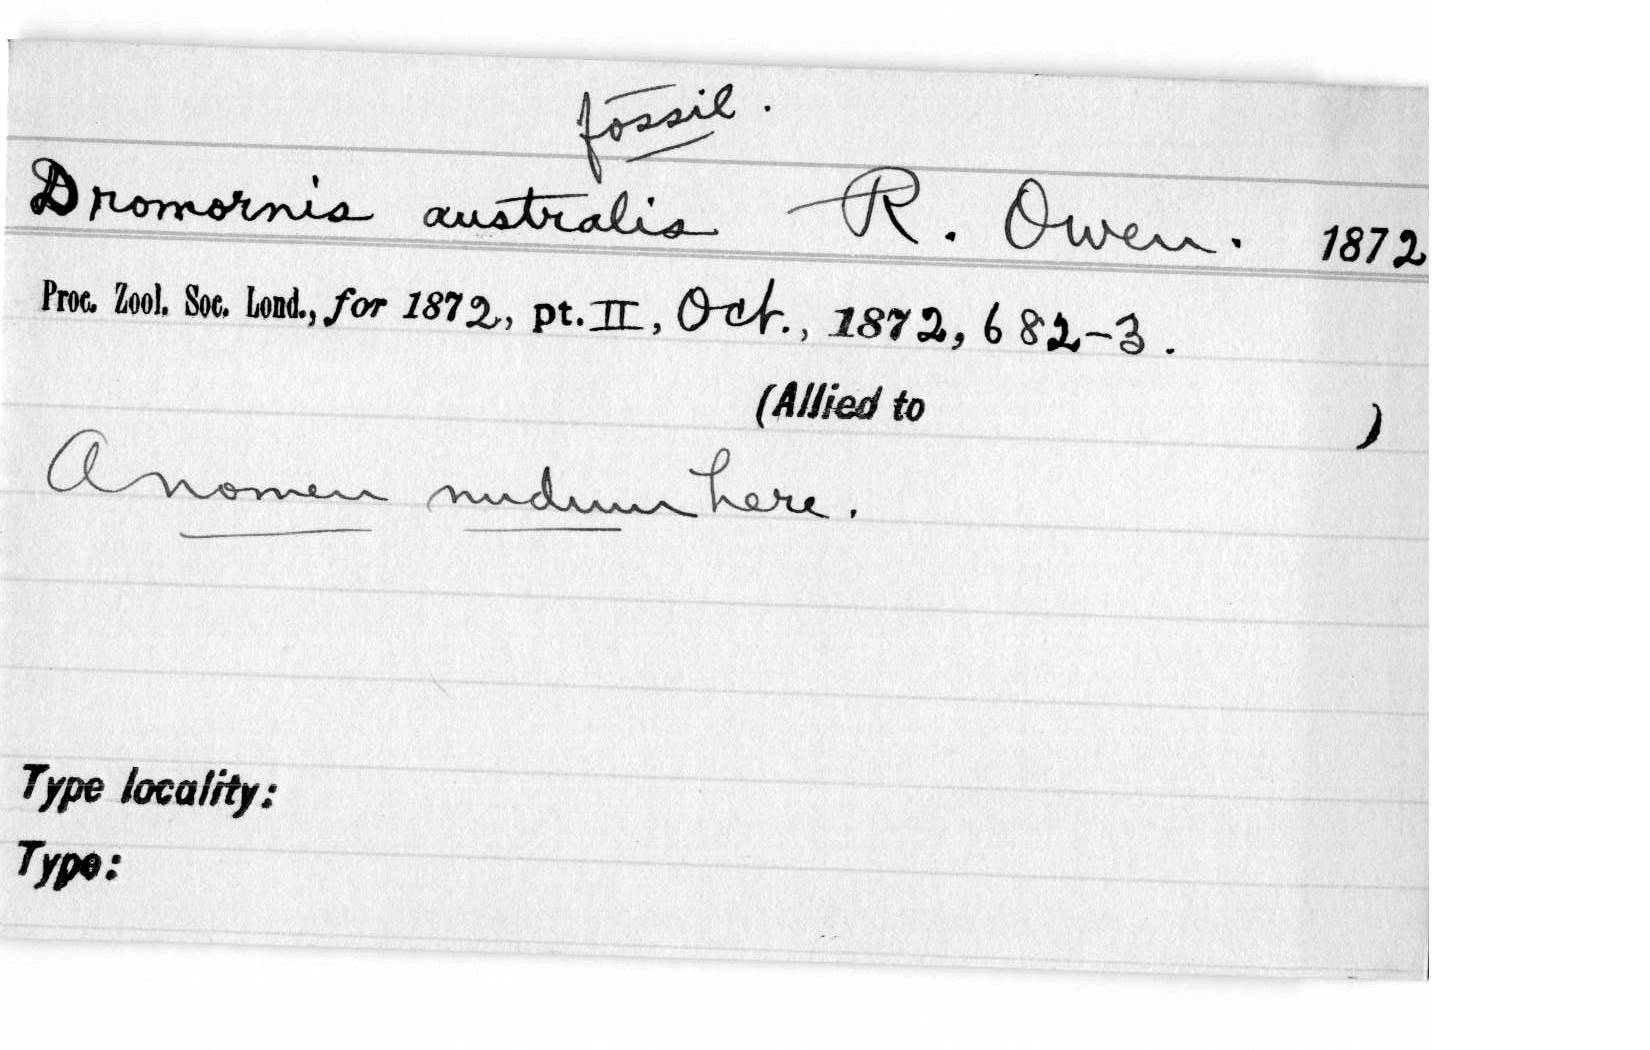 fossil.
Dromornis australis R. Owen. 1872
Proc. Zool. Soc. Lond., for 1872, pt. II, Oct., 1872, 682-3.
(Allied to )
A nomen nudum here.
Type locality:
Type: